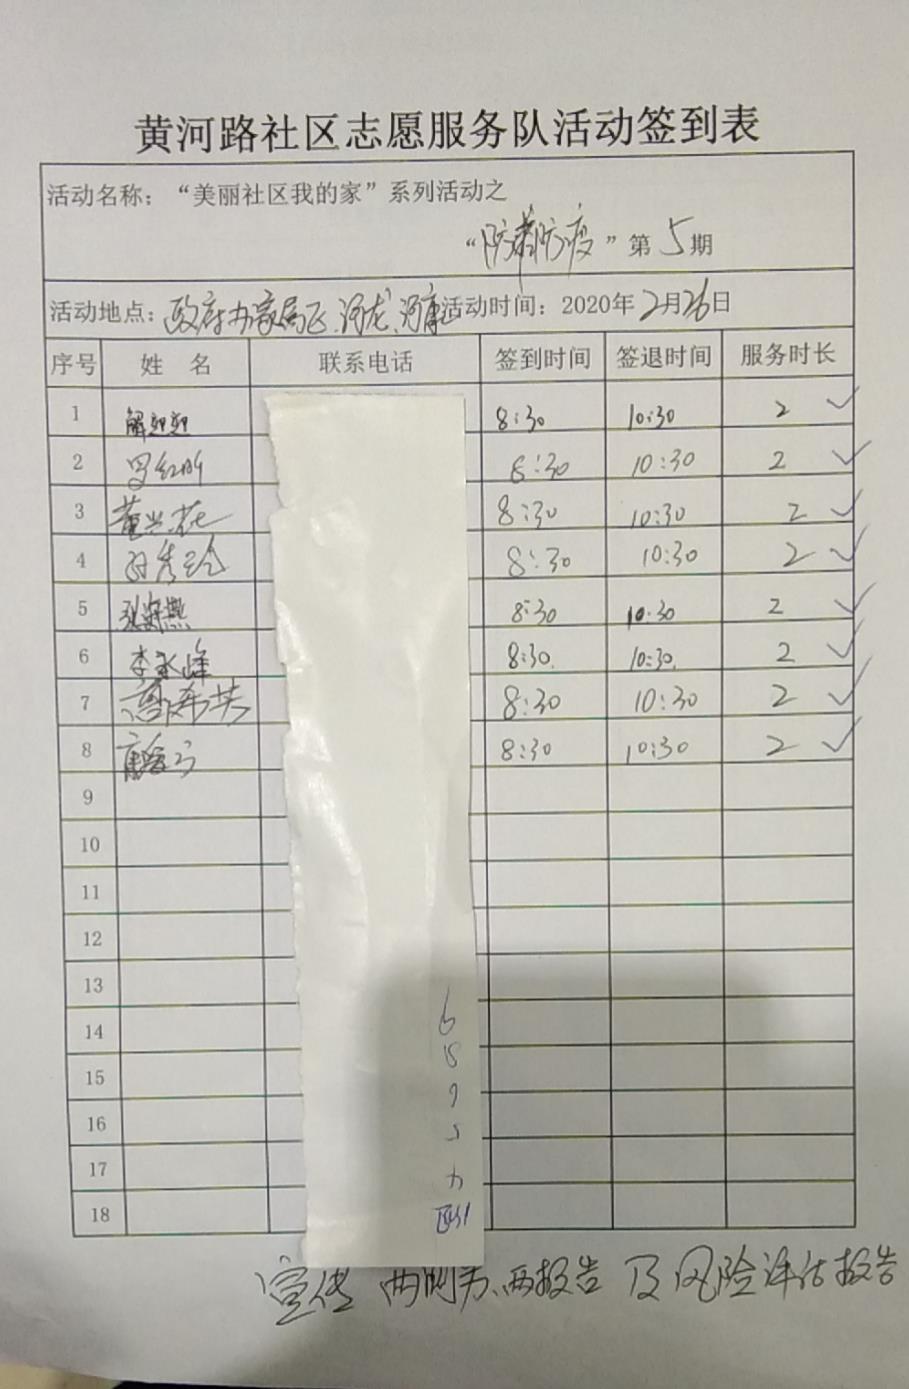 黄河路社区志愿服务队活动签到表
活动名称：“美丽社区我的家”系列活动之
“防毒防疫”第5期
活动地点：政府办家属区、河龙、河康 活动时间：2020年2月26日
序号 姓 名 联系电话 签到时间 签退时间 服务时长
1 解迎迎 8:30 10:30 2 ✓
2 8:30 10:30 2 ✓
3 董兴花 8:30 10:30 2 ✓
4 8:30 10:30 2 ✓
5 8:30 10:30 2 ✓
6 李永峰 8:30 10:30 2 ✓
7 高希英 8:30 10:30 2 ✓
8 8:30 10:30 2 ✓
9
10
11
12
13
14
15
16
17
18
宣传 两报告 及风险评估报告